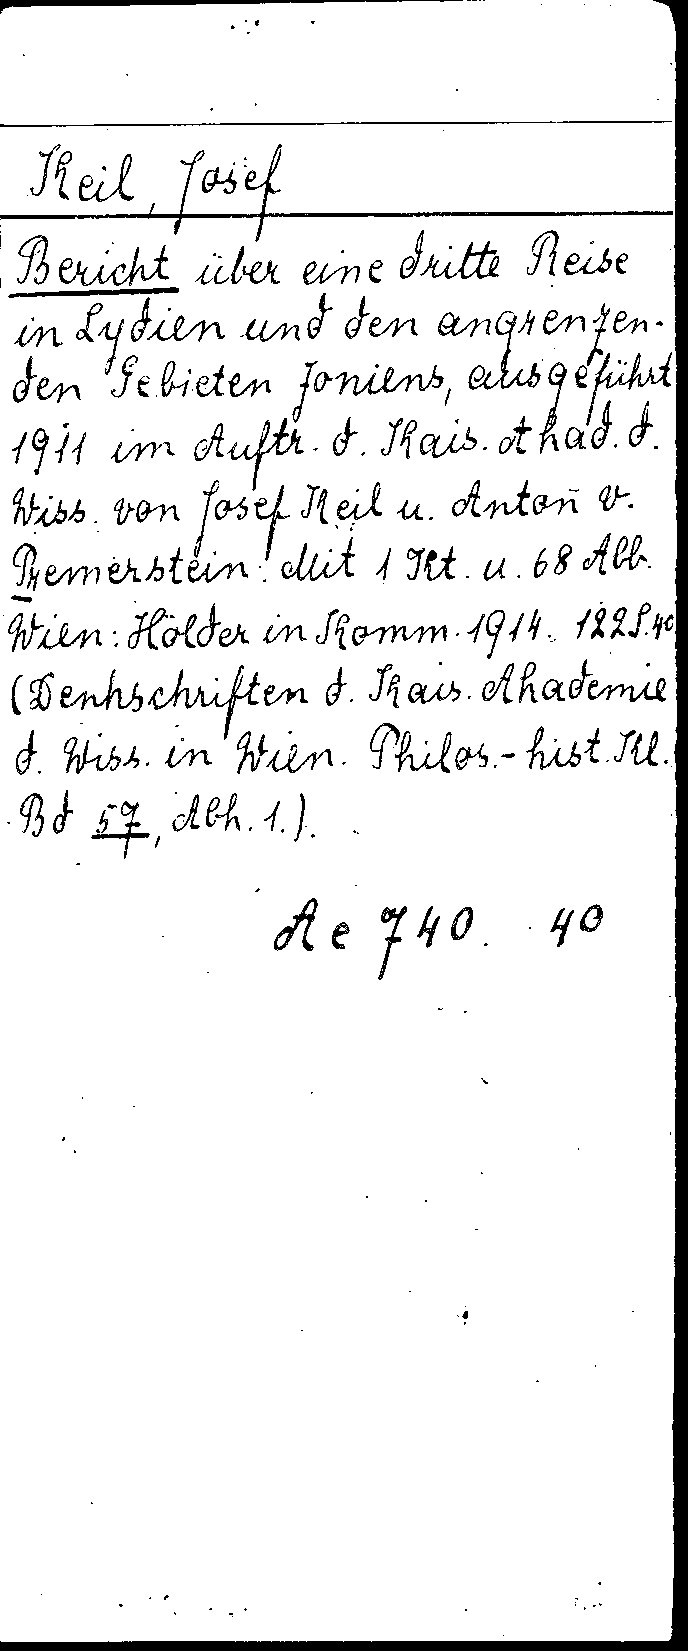 Keil, Josef
Bericht über eine dritte Reise
in Lydien und den angrenzen-
den Gebieten Joniens, ausgeführt
1911 im Auftr. d. Kais. Akad. d.
Wiss. von Josef Keil u. Anton v.
Premerstein. Mit 1 Kt. u. 68 Abb.
Wien: Hölder in Komm. 1914. 122 S. 40
(Denkschriften d. Kais. Akademie
d. Wiss. in Wien. Philos.-hist. Kl.
Bd 57, Abh. 1.).
Ae 740. 40